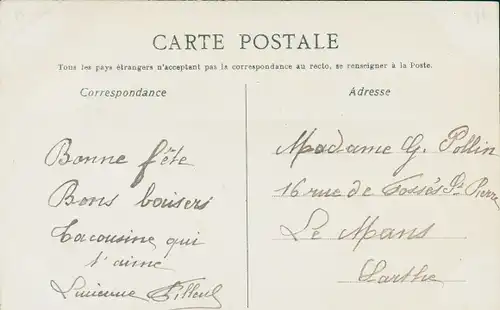 CARTE POSTALE
Tous les pays étrangers n'acceptant pas la correspondance au recto, se renseigner à la Poste.
Correspondance
Bonne fête
Bons baisers
Ta cousine qui
t'aime
Lucienne Filleul
Adresse
Madame G. Pollin
16 rue de Fossés St Pierre
Le Mans
Sarthe